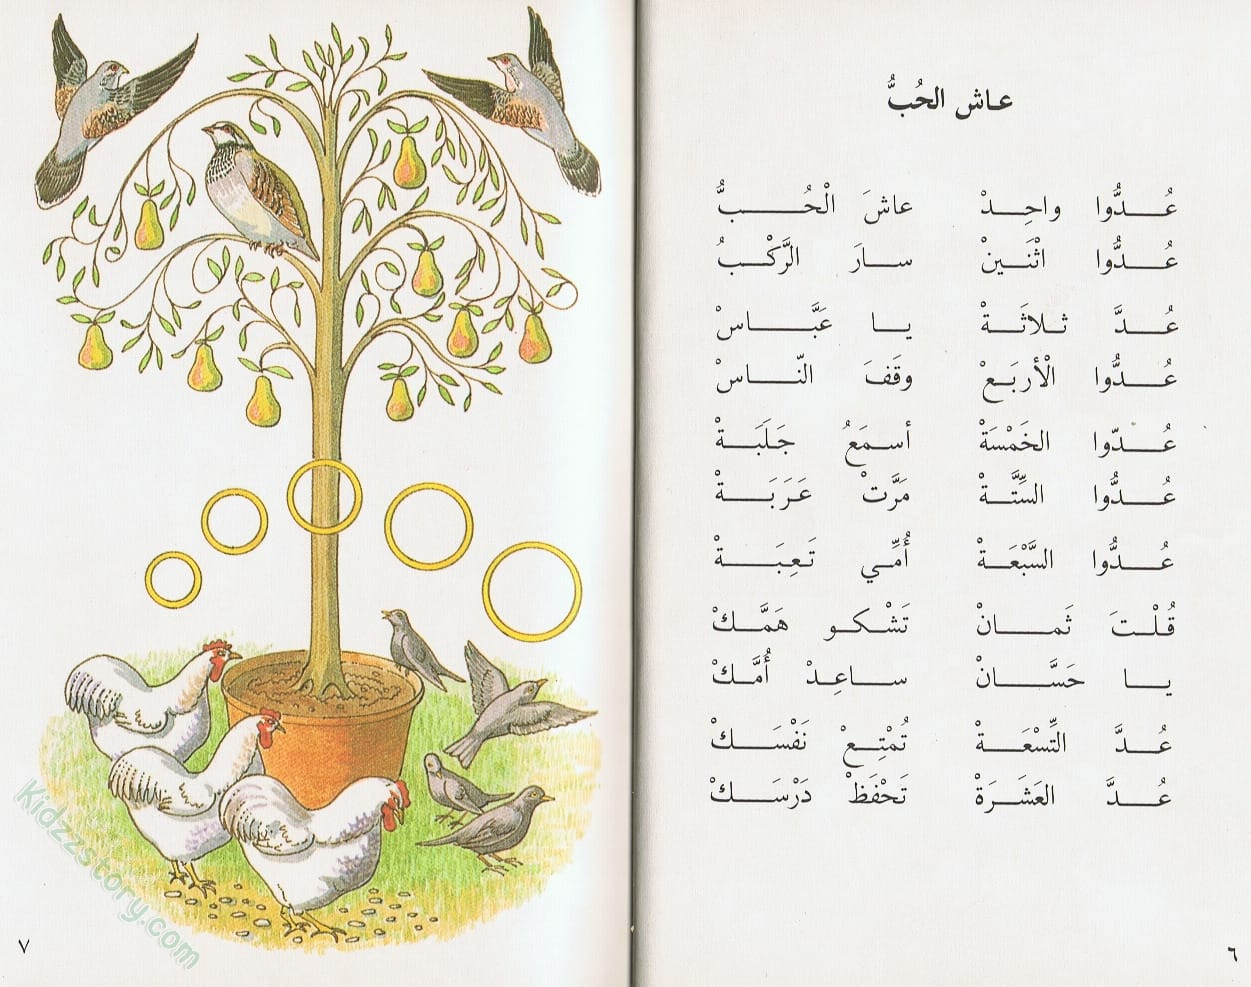 عاش الحُبُّ
عُدُّوا واحِدْ عاشَ الْحُبُّ
عُدُّوا اثْنَينْ سارَ الرَّكْبُ
عُدَّ ثلاثَةْ يا عَبَّاسْ
عُدُّوا الْأربَعْ وقَفَ النّاسْ
عُدّوا الخَمْسَةْ أسمَعُ جَلَبَةْ
عُدُّوا السِّتَّةْ مَرَّتْ عَرَبَةْ
عُدُّوا السَّبْعَةْ أُمِّي تَعِبَةْ
قُلْتَ ثَمانْ تَشْكو هَمَّكْ
يا حَسَّانْ ساعِدْ أُمَّكْ
عُدَّ التِّسْعَةْ تُمْتِعْ نَفْسَكْ
عُدَّ العَشَرَةْ تَحْفَظْ دَرْسَكْ
٦
Kidzzstory.com
٧